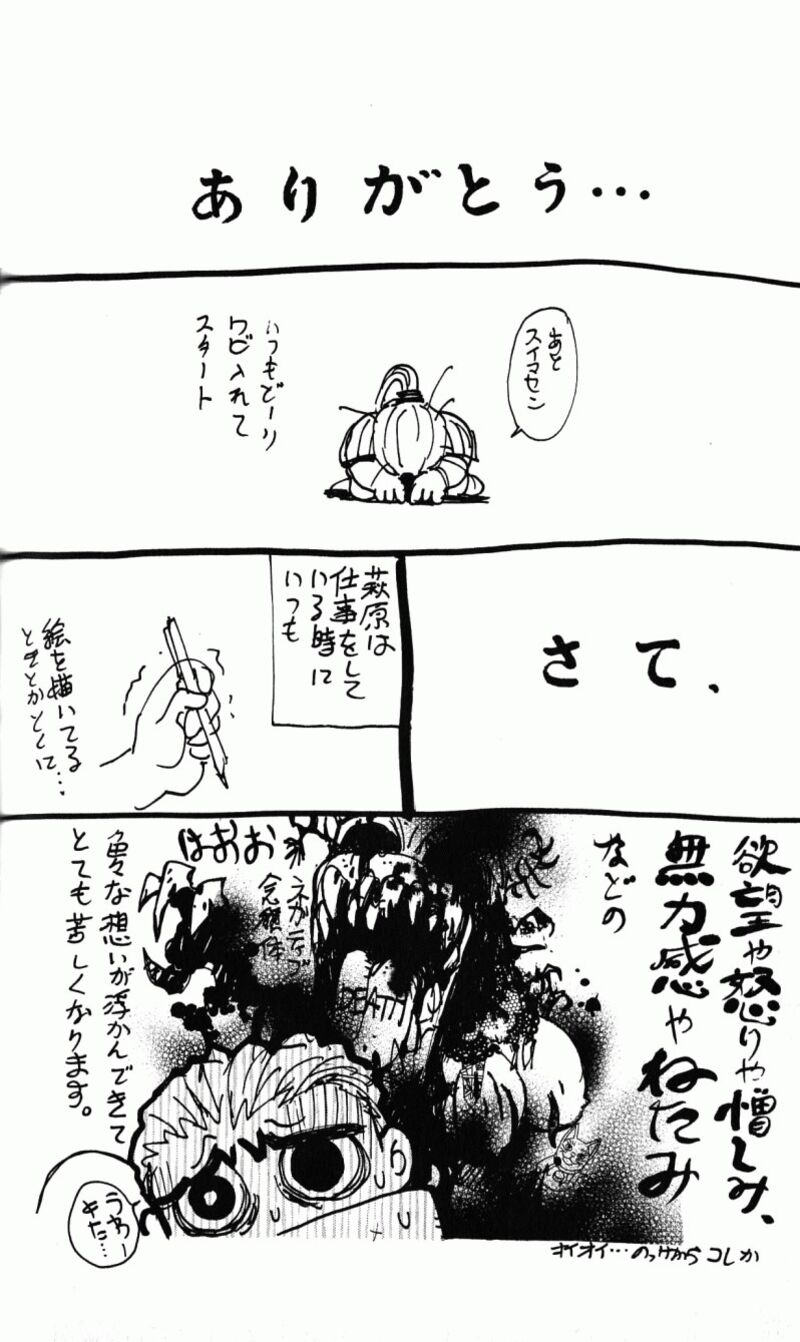 ありがとう…
あと
スイマセン
いつもどーり
ワビ入れて
スタート
さて、
萩原は
仕事をして
いる時に
いつも
絵を描いてる
ときとかとくに…
欲望や怒りや憎しみ、
無力感やねたみ
などの
ネガティブ
念積体
おおおは
DEATH
色々な想いが浮かんできて
とても苦しくなります。
うわー
きた…
オイオイ…のっけからコレか